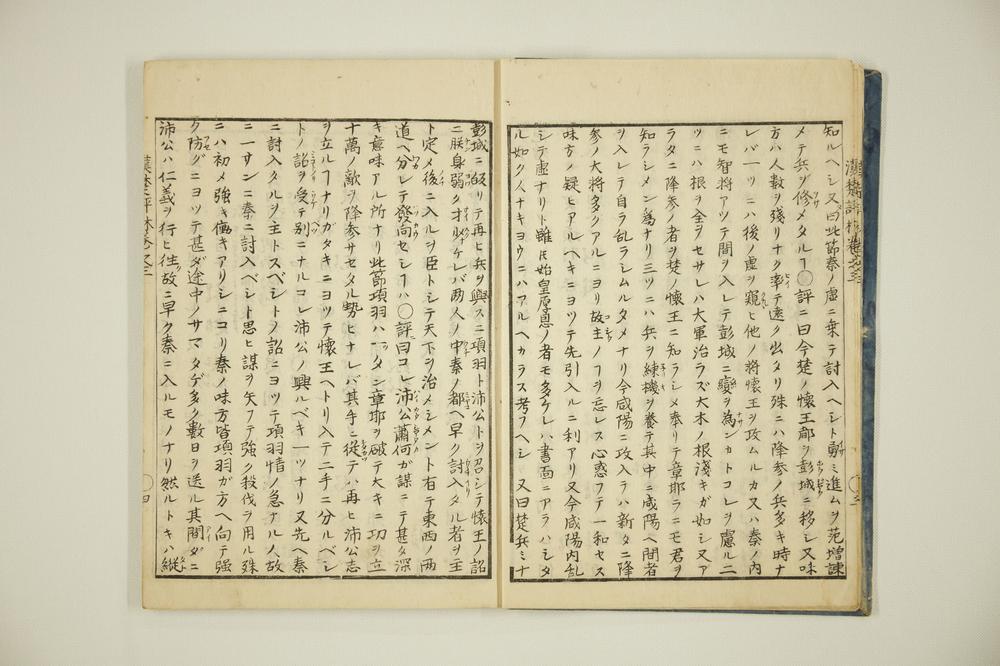 知ルヘシ又曰此節秦ノ虚ニ乗テ討入ヘシト勇ミ進ムヲ范増諫
メテ兵ヲ修メタルヿ〇評ニ曰今楚ノ懐王都ヲ彭城ニ移シ又味
方ハ人数ヲ残リナク率テ遠ク出タリ殊ニハ降参ノ兵多キ時ナ
レバ一ツニハ後ノ虚ヲ窺ヒ他ノ将懐王ヲ攻ムルカ又ハ秦ノ内
ニモ智将アツテ間ヲ入レテ彭城ニ変ヲ為ンカトコレヲ慮ル二
ツニハ根ヲ全ラセサレハ大軍治ラズ大木ノ根浅キガ如シ又ア
ラタニ降参ノ者ヲ楚ノ懐王ニ知ラシメ奉リテ章邯ラニモ君ヲ
知ラシメン為ナリ三ツニハ兵ヲ練機ヲ養テ其中ニ咸陽ヘ間者
ヲ入レテ自ラ乱ラシムルタメナリ今咸陽ニ攻入ラハ新タニ降
参ノ大将多クアルニヨリ故主ノヿヲ忘レス心惑フテ一和セス
味方ノ疑ヒアルヘキニヨツテ先引入ルニ利アリ又今咸陽内乱
シテ虚ナリト雖𪜈始皇厚恩ノ者モ多ケレハ書面ニアラハシタ
ル如ク人ナキヨウニハアルヘカラス考フヘシ 又曰楚兵ミナ
彭城ニ皈リテ再ヒ兵ヲ興スニ項羽ト沛公トヲ召シテ懐王ノ詔
ニ朕身弱ク才ケレバ両人ノ中秦ノ都ヘ早ク討入タル者ヲ主
ト定メ後ニ入ルヲ臣トシテ天下ヲ治メシメント有テ東西ノ両
道ヘ分レテ發向セシヿハ〇評曰コレ沛公蕭何ガ謀ニテ甚タ深
キ意味アル所ナリ此節項羽ハ一タン章邯ヲ破テ大キニ功ヲ立
十萬ノ敵ヲ降参サセタル勢ヒナレバ其手ニ從テハ再ヒ沛公志
ヲ立ルヿナリガタキニヨツテ懐王ヘトリ入テ二手ニ分ルベシ
トノ詔ヲ受テ別ニナルコレ沛公ノ興ルベキ一ツナリ又先ヘ秦
ニ討入タルヲ主トスベシトノ詔ニヨツテ項羽情ノ急ナル人故
ニ一サンニ秦ニ討入ベシト思ヒ謀ヲ失フテ強ク殺伐ヲ用ル殊
ニハ初メ強キ働キアリシニコリ秦ノ味方皆項羽ガ方ヘ向テ強
ク防グニヨツテ甚ダ途中ノサマタゲ多ク數日ヲ送ル其間ダニ
沛公ハ仁義ヲ行ヒ往故ニ早ク秦ニ入ルモノナリ然ルトキハ縦